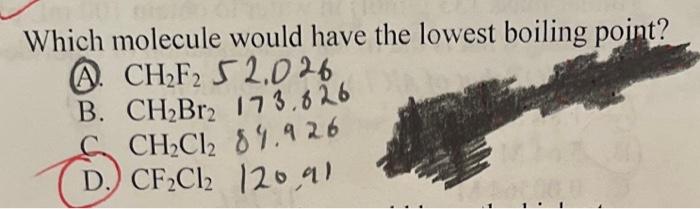 Which molecule would have the lowest boiling point?
A. CH₂F₂ 52.026
B. CH₂Br₂ 173.826
C. CH₂Cl₂ 84.926
D. CF₂Cl₂ 120.91